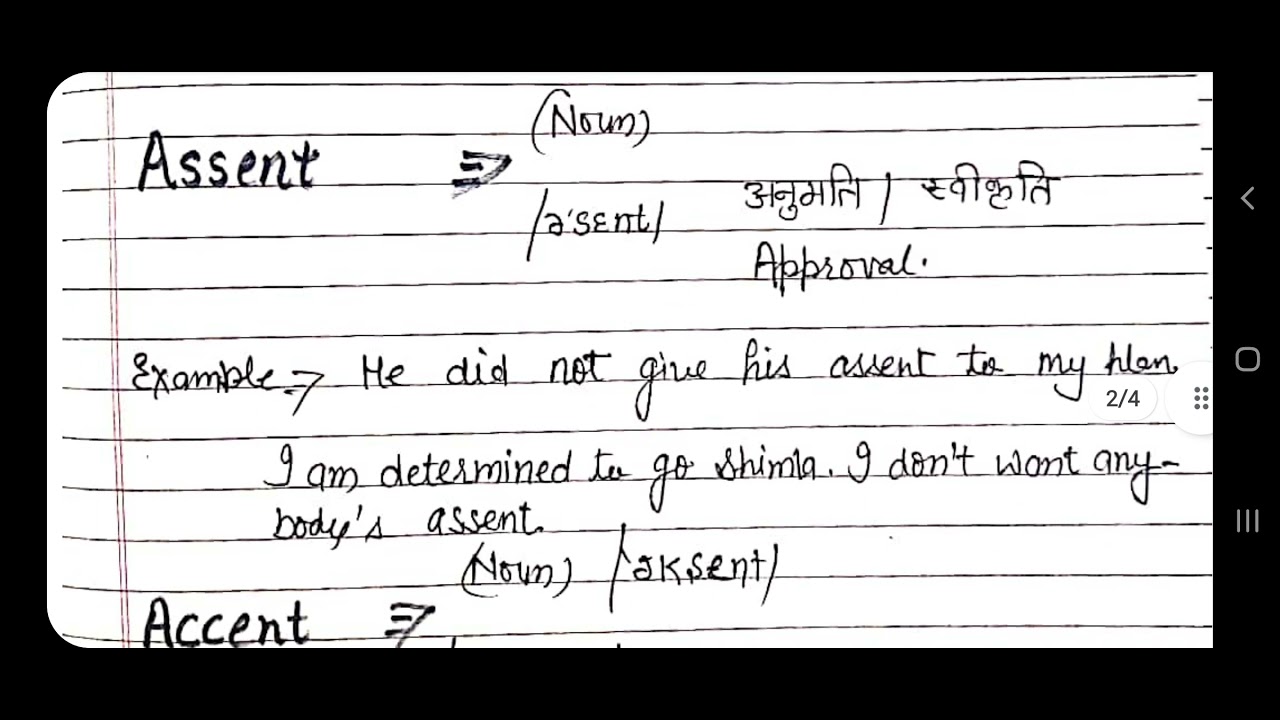 (Noun)
Assent ⇒
/ə'sɛnt/ अनुमति / स्वीकृति
Approval.
Example ⇒ He did not give his assent to my plan
2/4
I am determined to go Shimla. I don't want any-
body's assent.
(Noun) /'əksɛnt/
Accent ⇒